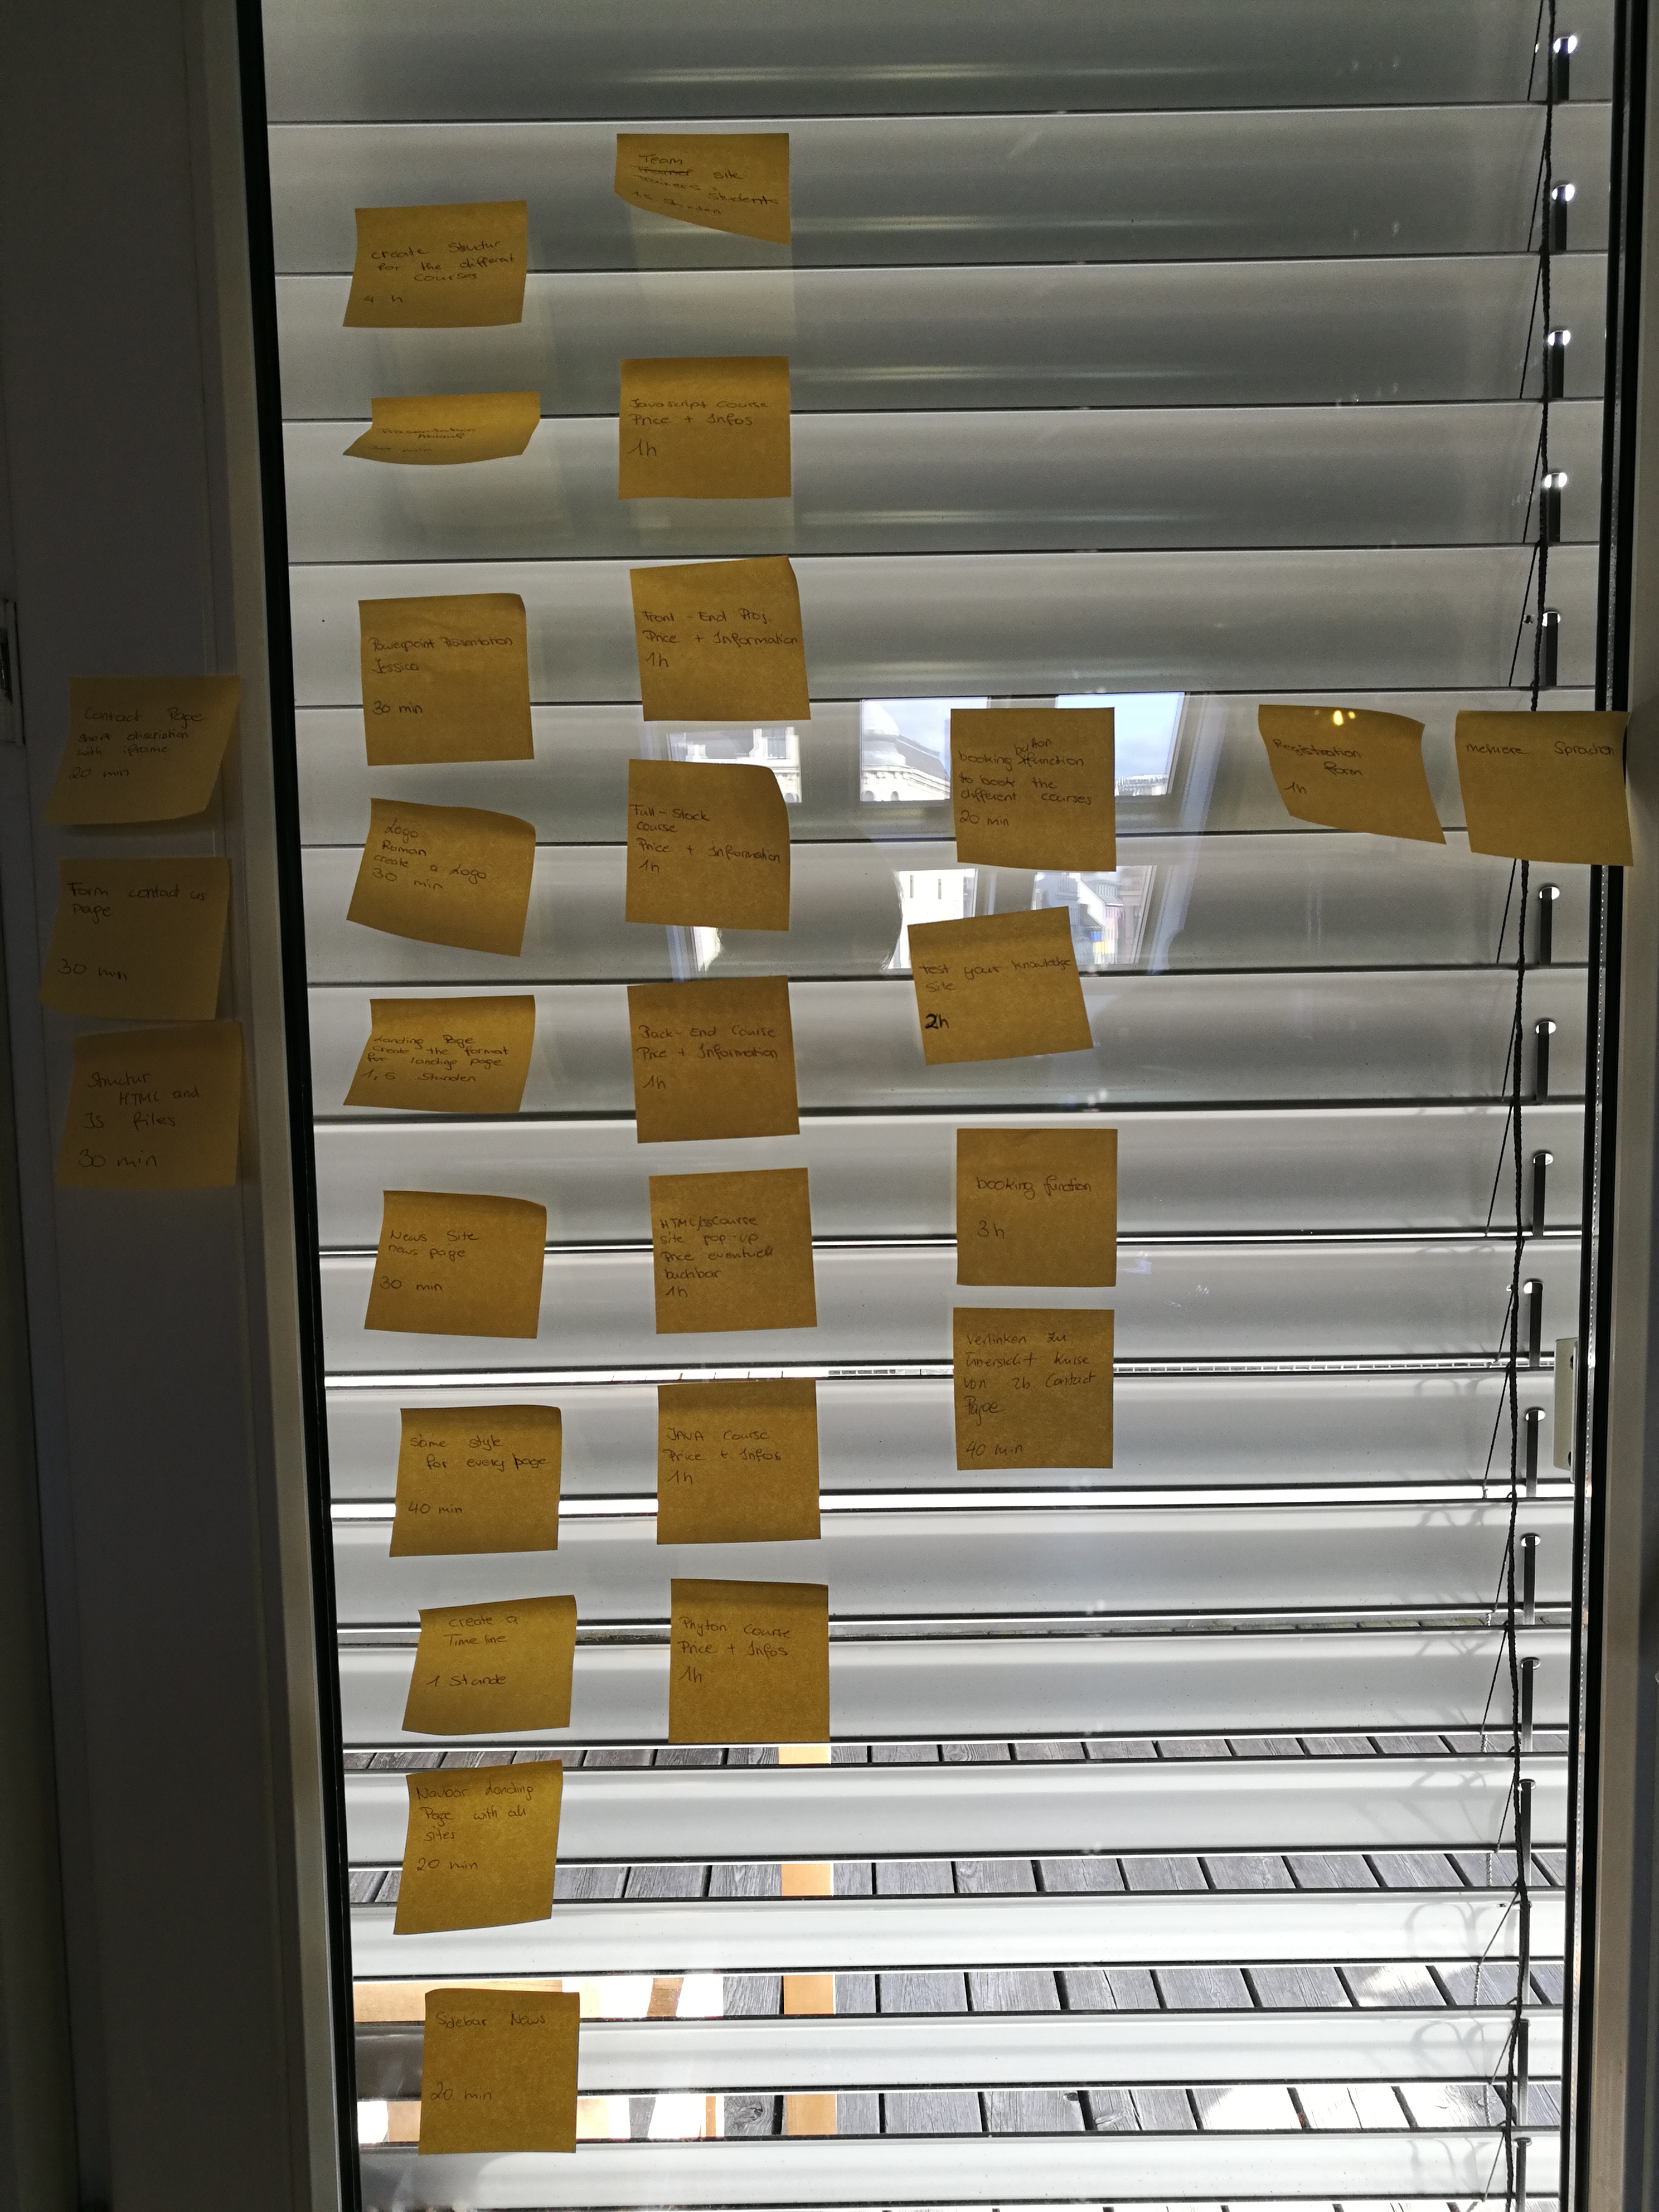 Contact Page
short discription
with iframe
20 min
Form contact us
page
30 min
Structur
HTML and
Js files
30 min
create Structur
for the different
Courses
4 h
Presentation
min
Powerpoint Presentation
Jessica
30 min
Logo
Roman
create a Logo
30 min
Landing Page
create the format
for landing page
1,5 Stunden
News Site
news page
30 min
same style
for every page
40 min
create a
Time line
1 Stunde
Navbar Landing
Page with all
sites
20 min
Sidebar News
20 min
Team
site
Students
Javascript Course
Price + Infos
1h
Front-End Prog.
Price + Information
1h
Full-Stack
Course
Price + Information
1h
Back-End Course
Price + Information
1h
HTML/Course
site pop-up
Price eventuell
buchbar
1h
JAVA Course
Price + Infos
1h
Phyton Course
Price + Infos
1h
button
booking function
to book the
different courses
20 min
Test your knowledge
site
2h
booking function
3h
Verlinken zu
Kurse
von zb. Contact
Page
40 min
Registration
form
1h
mehrere Sprachen